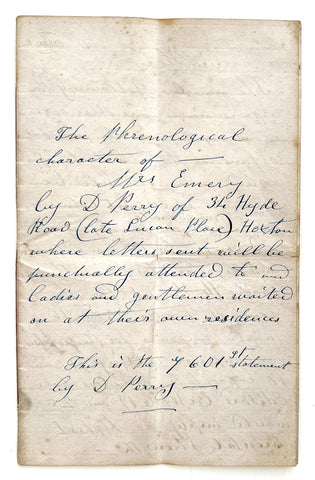 The Phrenological
character of —
Mrs Emery
by D Perry of 34 Hyde
Road (late Place) Hoxton
where letters sent will be
punctually attended to and
Ladies and gentlemen waited
on at their own residences
This is the 7601st statement
by D Perry —